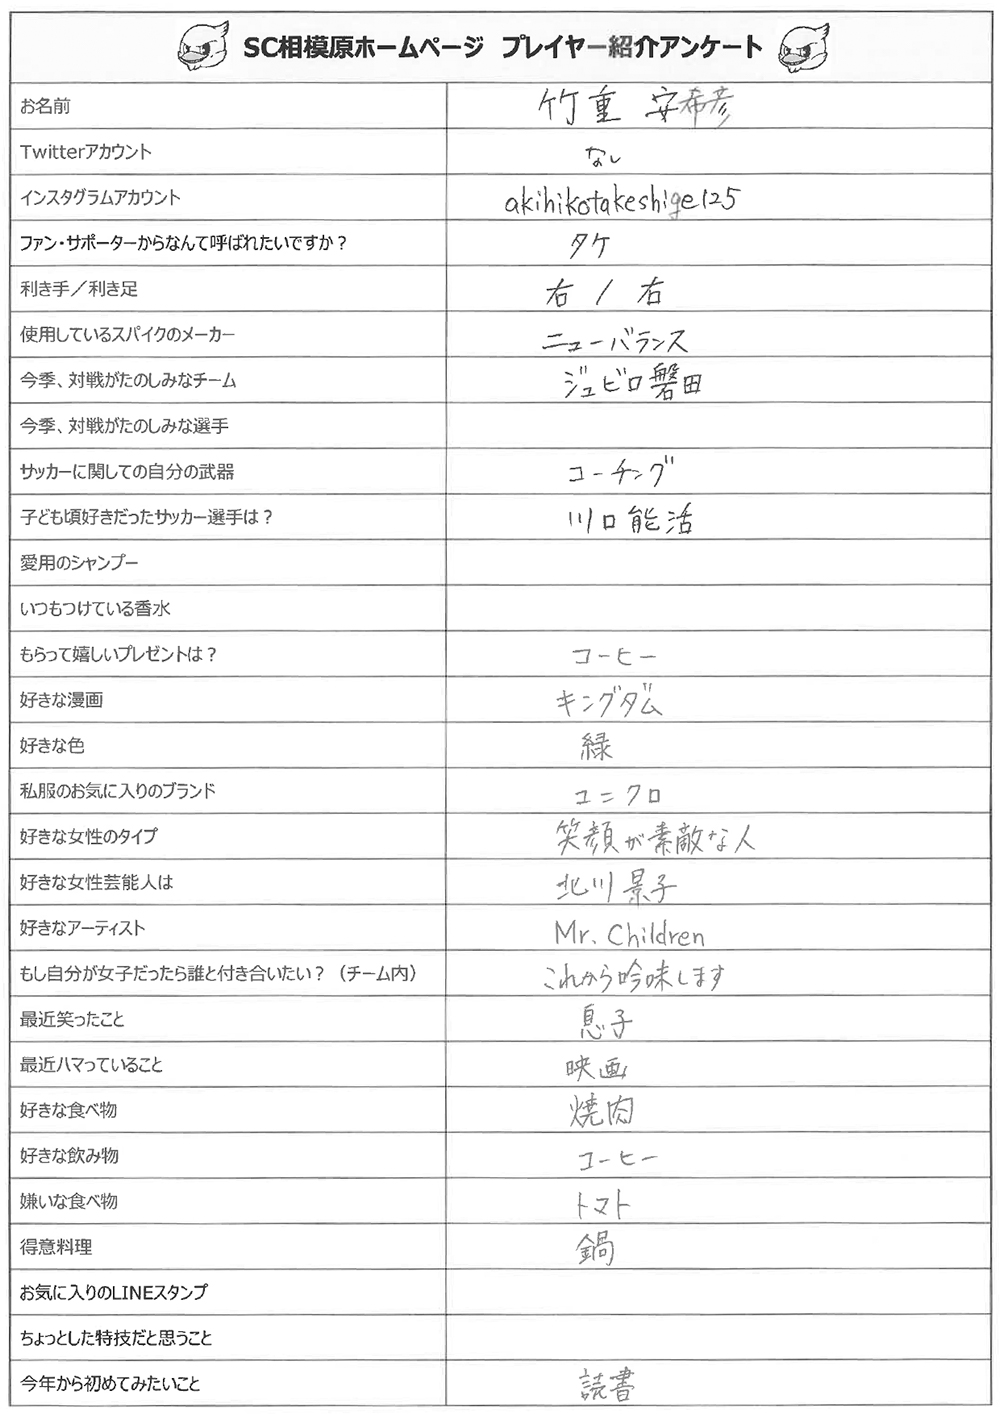 SC相模原ホームページ プレイヤー紹介アンケート
お名前 竹重 安希彦
Twitterアカウント なし
インスタグラムアカウント akihikotakeshige125
ファン・サポーターからなんて呼ばれたいですか？ タケ
利き手／利き足 右 / 右
使用しているスパイクのメーカー ニューバランス
今季、対戦がたのしみなチーム ジュビロ磐田
今季、対戦がたのしみな選手
サッカーに関しての自分の武器 コーチング
子ども頃好きだったサッカー選手は？ 川口能活
愛用のシャンプー
いつもつけている香水
もらって嬉しいプレゼントは？ コーヒー
好きな漫画 キングダム
好きな色 緑
私服のお気に入りのブランド ユニクロ
好きな女性のタイプ 笑顔が素敵な人
好きな女性芸能人は 北川景子
好きなアーティスト Mr. Children
もし自分が女子だったら誰と付き合いたい？（チーム内） これから吟味します
最近笑ったこと 息子
最近ハマっていること 映画
好きな食べ物 焼肉
好きな飲み物 コーヒー
嫌いな食べ物 トマト
得意料理 鍋
お気に入りのLINEスタンプ
ちょっとした特技だと思うこと
今年から初めてみたいこと 読書